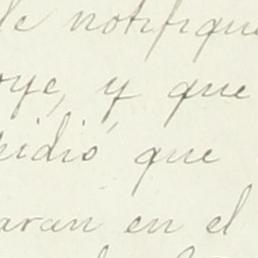 le notifiqu
oye, y que
pidió que
aran en el